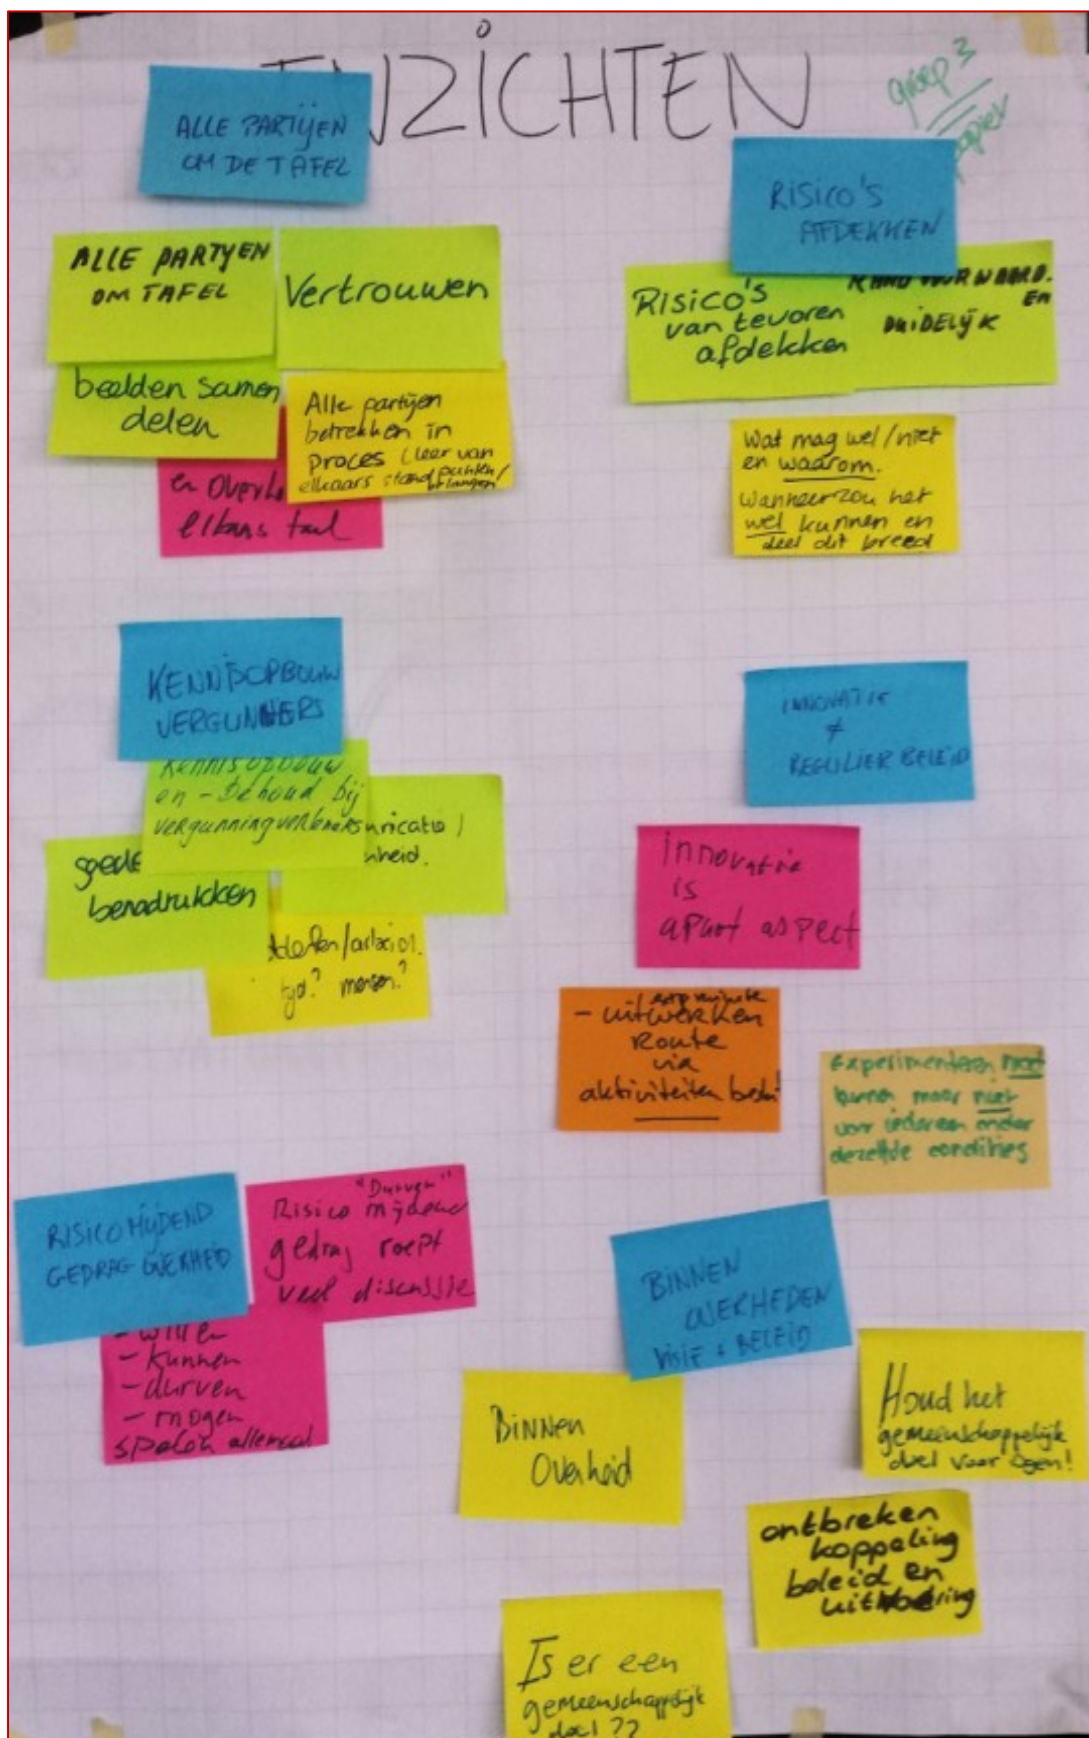 INZICHTEN
groep 3
papier
ALLE PARTIJEN
OM DE TAFEL
ALLE PARTYEN
OM TAFEL
Vertrouwen
beelden samen
delen
Alle partijen
betrekken in
proces (leer van
elkaars standpunten/
belangen
en
elkaars taal
RISICO'S
AFDEKKEN
Risico's
van tevoren
afdekken
RANDVOORWAARD.
EN
DUIDELIJK
Wat mag wel/niet
en waarom.
Wanneer zou het
wel kunnen en
deel dit breed
KENNISOPBOUW
VERGUNNERS
Kennisopbouw
en -behoud bij
vergunningverleners
goede
benadrukken
nheid.
tijd? mensen?
INNOVATIE
≠
REGULIER BELEID
innovatie
is
apart aspect
- uitwerken
Route
via
aktiviteiten
Experimenteren moet
kunnen maar niet
voor iedereen onder
dezelfde condities
RISICOMIJDEND
GEDRAG OVERHEID
"Durven"
Risico mijdend
gedrag roept
veel discussie
- willen
- kunnen
- durven
- mogen
spelen allemaal
BINNEN
OVERHEDEN
VISIE + BELEID
BINNEN
Overheid
Houd het
gemeenschappelijk
doel voor ogen!
ontbreken
koppeling
beleid en
uitvoering
Is er een
gemeenschappelijk
doel??